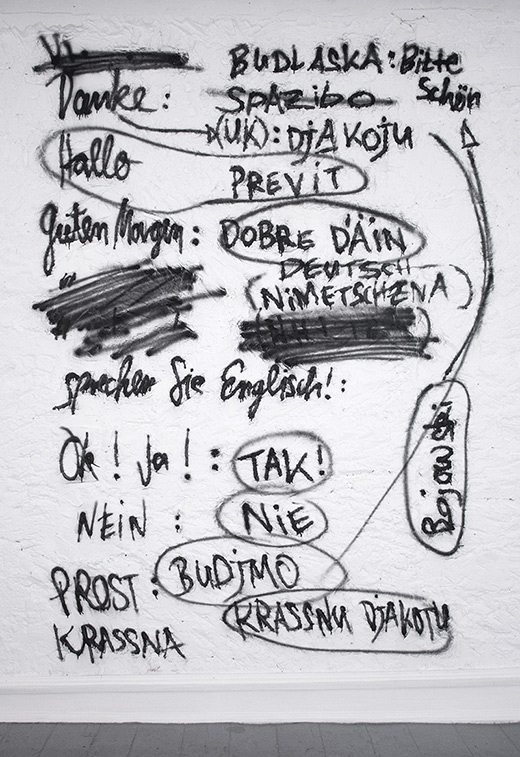 BUDLASKA: Bitte
Schön
Danke: SPAZIBO
(UK): DJAKOJU
Hallo PREVIT
guten Morgen: DOBRE DÄIN
DEUTSCH
(NIMETSCHENA)
sprechen Sie Englisch!:
Ok! Ja!: TAK!
NEIN: NIE
PROST: BUDJMO
KRASSNA KRASSNU DJAKOTU